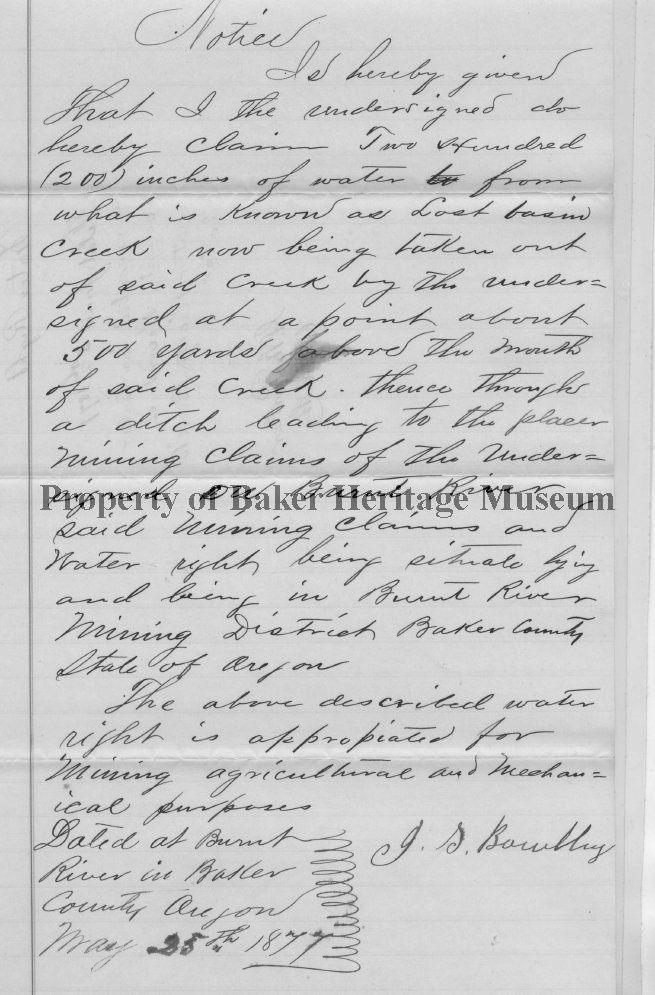 Notice
Is hereby given
That I the undersigned do
hereby claim Two Hundred
(200) inches of water to from
what is Known as Lost basin
Creek now being taken out
of said Creek by the under=
signed at a point about
500 yards above the mouth
of said Creek. thence through
a ditch leading to the placer
Mining Claims of the Under=
signed on Burnt River
Property of Baker Heritage Museum
said Mining Claims and
Water right being situate lying
and being in Burnt River
Mining District Baker County
State of Oregon
The above described water
right is appropiated for
Mining agricultural and Mechan=
ical purposes
Dated at Burnt
River in Baker
County Oregon
May 25th 1877
J. S.